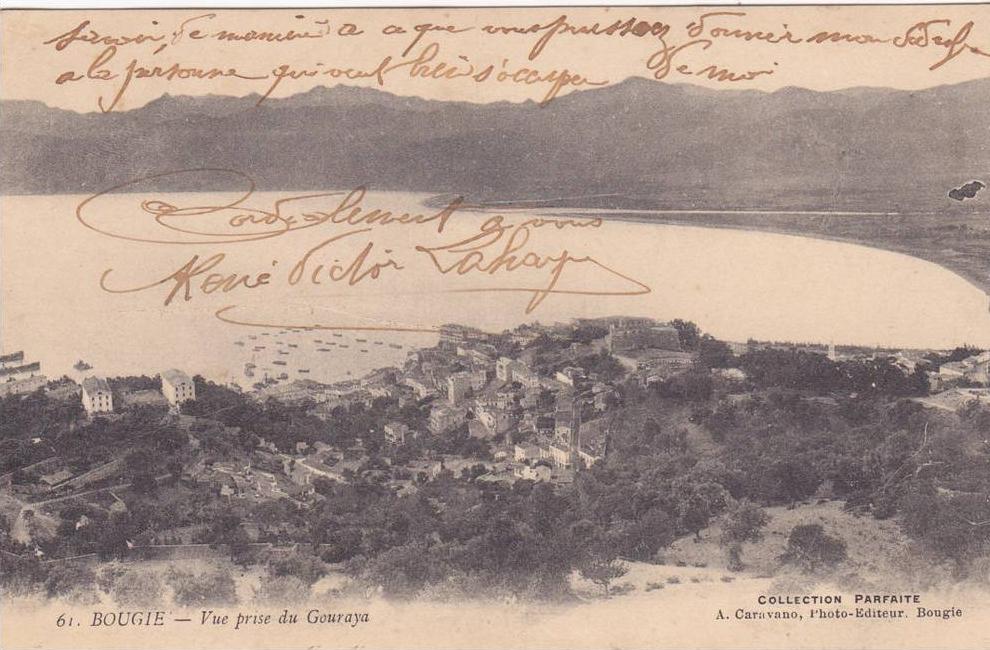 savoir, de manière a a que vous puissiez donner mon
a la personne qui veut bien s'occuper de moi
Cordialement a vous
René Victor Lahaye
61. BOUGIE — Vue prise du Gouraya
COLLECTION PARFAITE
A. Caravano, Photo-Editeur. Bougie